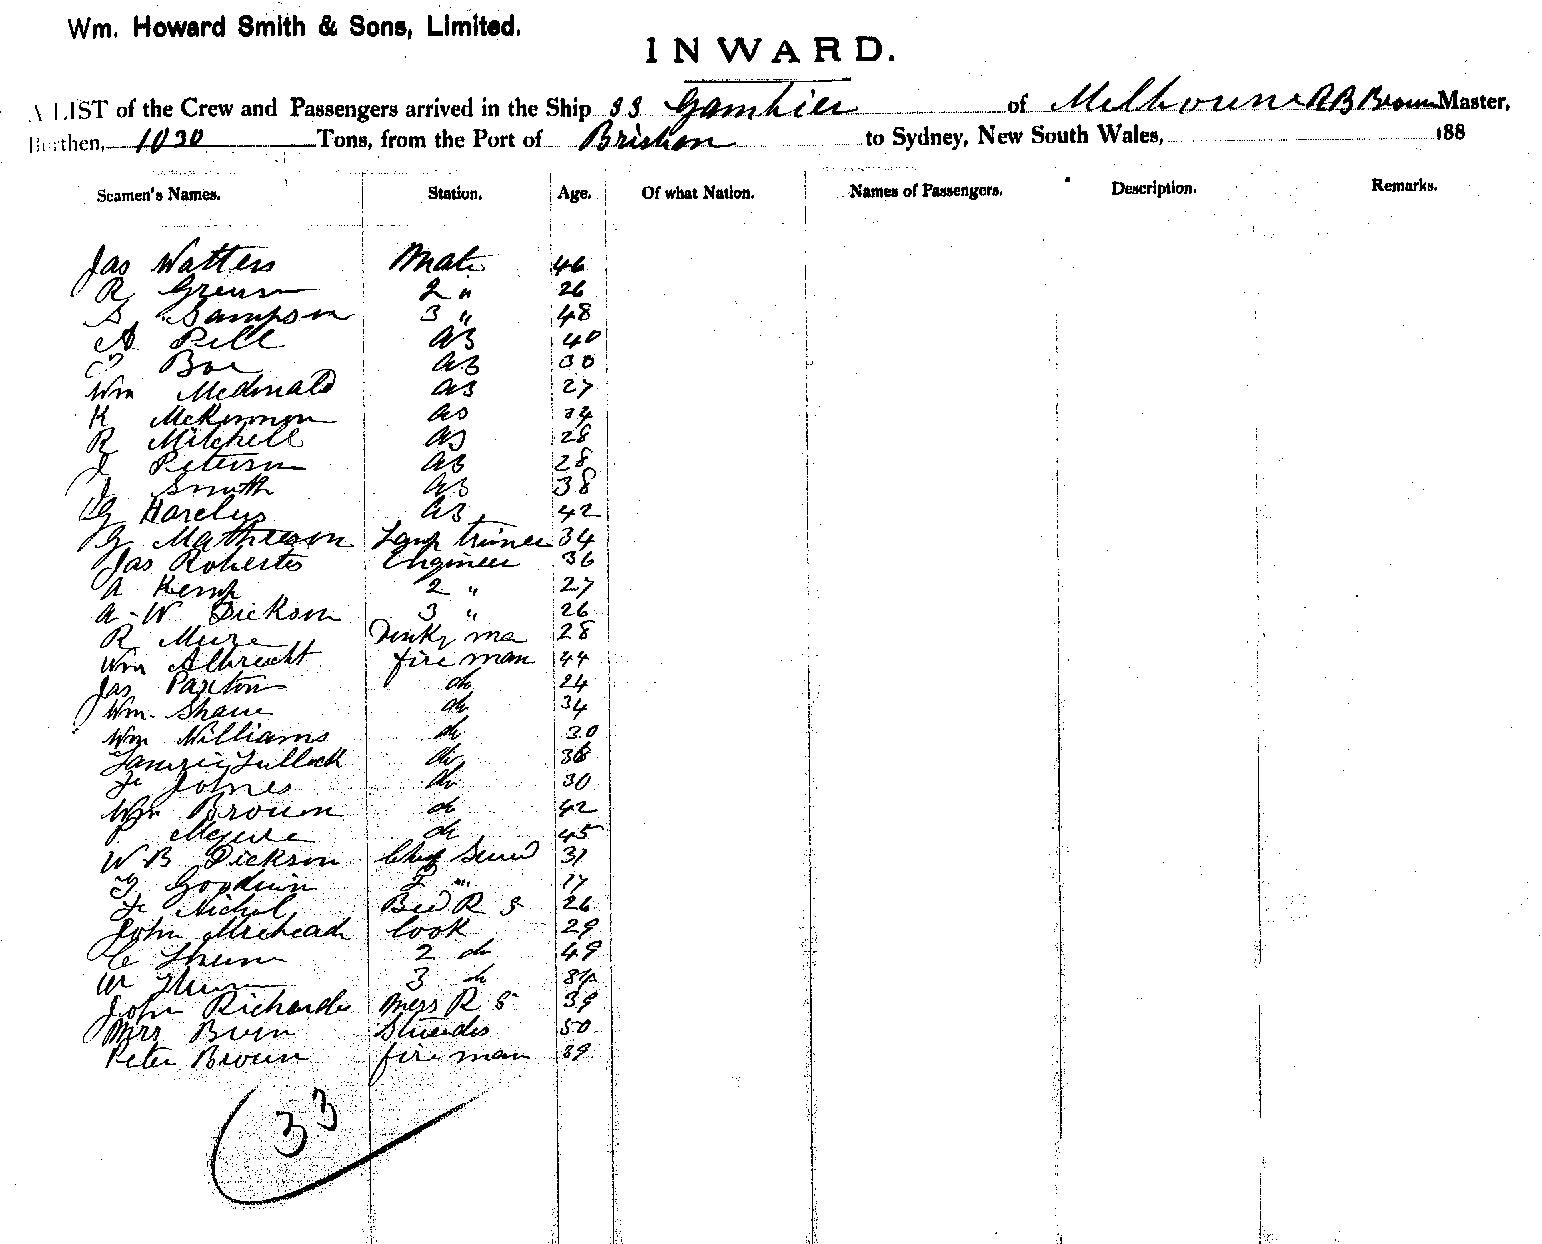 Wm. Howard Smith & Sons, Limited.
INWARD.
A LIST of the Crew and Passengers arrived in the Ship SS Gambier of Melbourne R B Brown Master,
Burthen, 1030 Tons, from the Port of Brisban to Sydney, New South Wales, 188
Seamen's Names. Station. Age. Of what Nation. Names of Passengers. Description. Remarks.
Jas Watters Mate 46
R 2 " 26
S Sampson 3 " 48
A Pill AB 40
Boe AB 30
Wm Mcdonald AB 27
K McKinnon AB 34
R Mitchell AB 28
J Peterson AB 28
J Smith AB 38
G AB 42
G Mathieson Lamp trimer 34
Jas Roberts Engineer 36
A Kemp 2 " 27
A-W Dickson 3 " 26
R Muze Donky ma 28
Wm Albrecht fire man 44
Jas Paxton do 24
Wm. Shaw do 34
Wm Williams do 30
Tullock do
Jones do 30
Wm Brown do 42
P Mcguire do 45
W B Dickson Chief 31
Goodwin 2 " 17
Nichol Bed R S 26
John Cook 29
C 2 do 49
W 3 do
John Richards Mess R S 39
Mrs 50
Peter Brown fire man 39
33